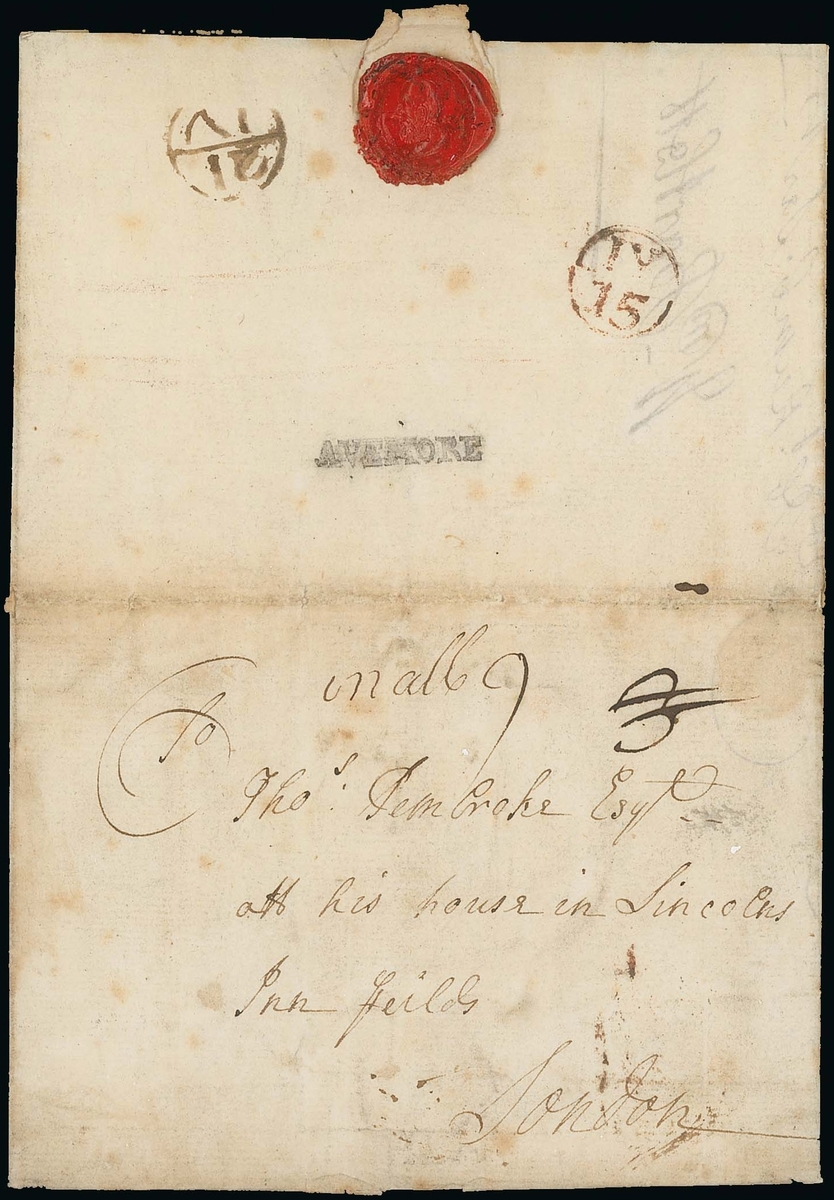 IV
15
AVEMORE
in all 9
3
To
Thos: Pembroke Esqr
att his house in Lincolns
Inn ffeilds
London